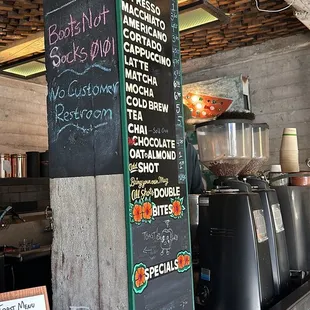 Boots Not
Socks 0101
No Customer
Restroom
ESPRESSO
MACCHIATO
AMERICANO
CORTADO
CAPPUCCINO
LATTE
MATCHA
MOCHA
COLD BREW
TEA
CHAI
CHOCOLATE
OAT & ALMOND
SHOT
All Shots DOUBLE
BITES
SPECIALS
Menu